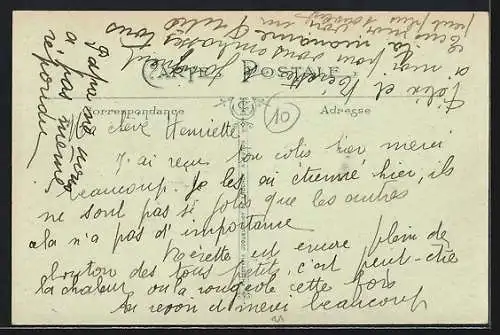 CARTE POSTALE
Correspondance
Adresse
10
Chère Henriette
J'ai reçu ton colis hier merci
beaucoup. Je les ai étrenné hier, ils
ne sont pas si jolis que les autres
cela n'a pas d'importance
Nérette est encore plein de
bouton des tous petits, c'est peut-être
la chaleur ou la rougeole cette fois
Au revoir et merci beaucoup
Papa ne nous
a pas même
répondu
Félix et Nérette
a moi pour vous embrasser tous
la
plus